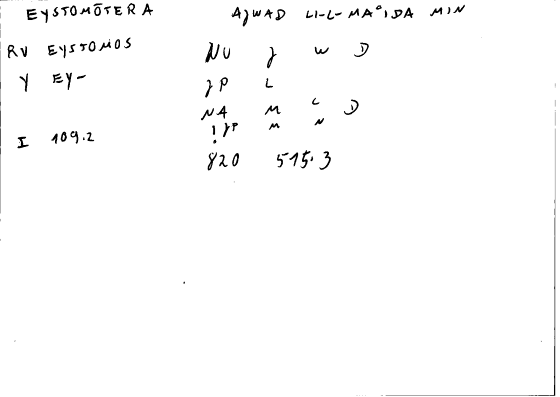 EYSTOMŌTERA AJWAD LI-L-MAʿIDA MIN
RV EYSTOMOS NU J W D
Y EY- JP L
NA M C D
! JP M N
I 109.2
820 515.3